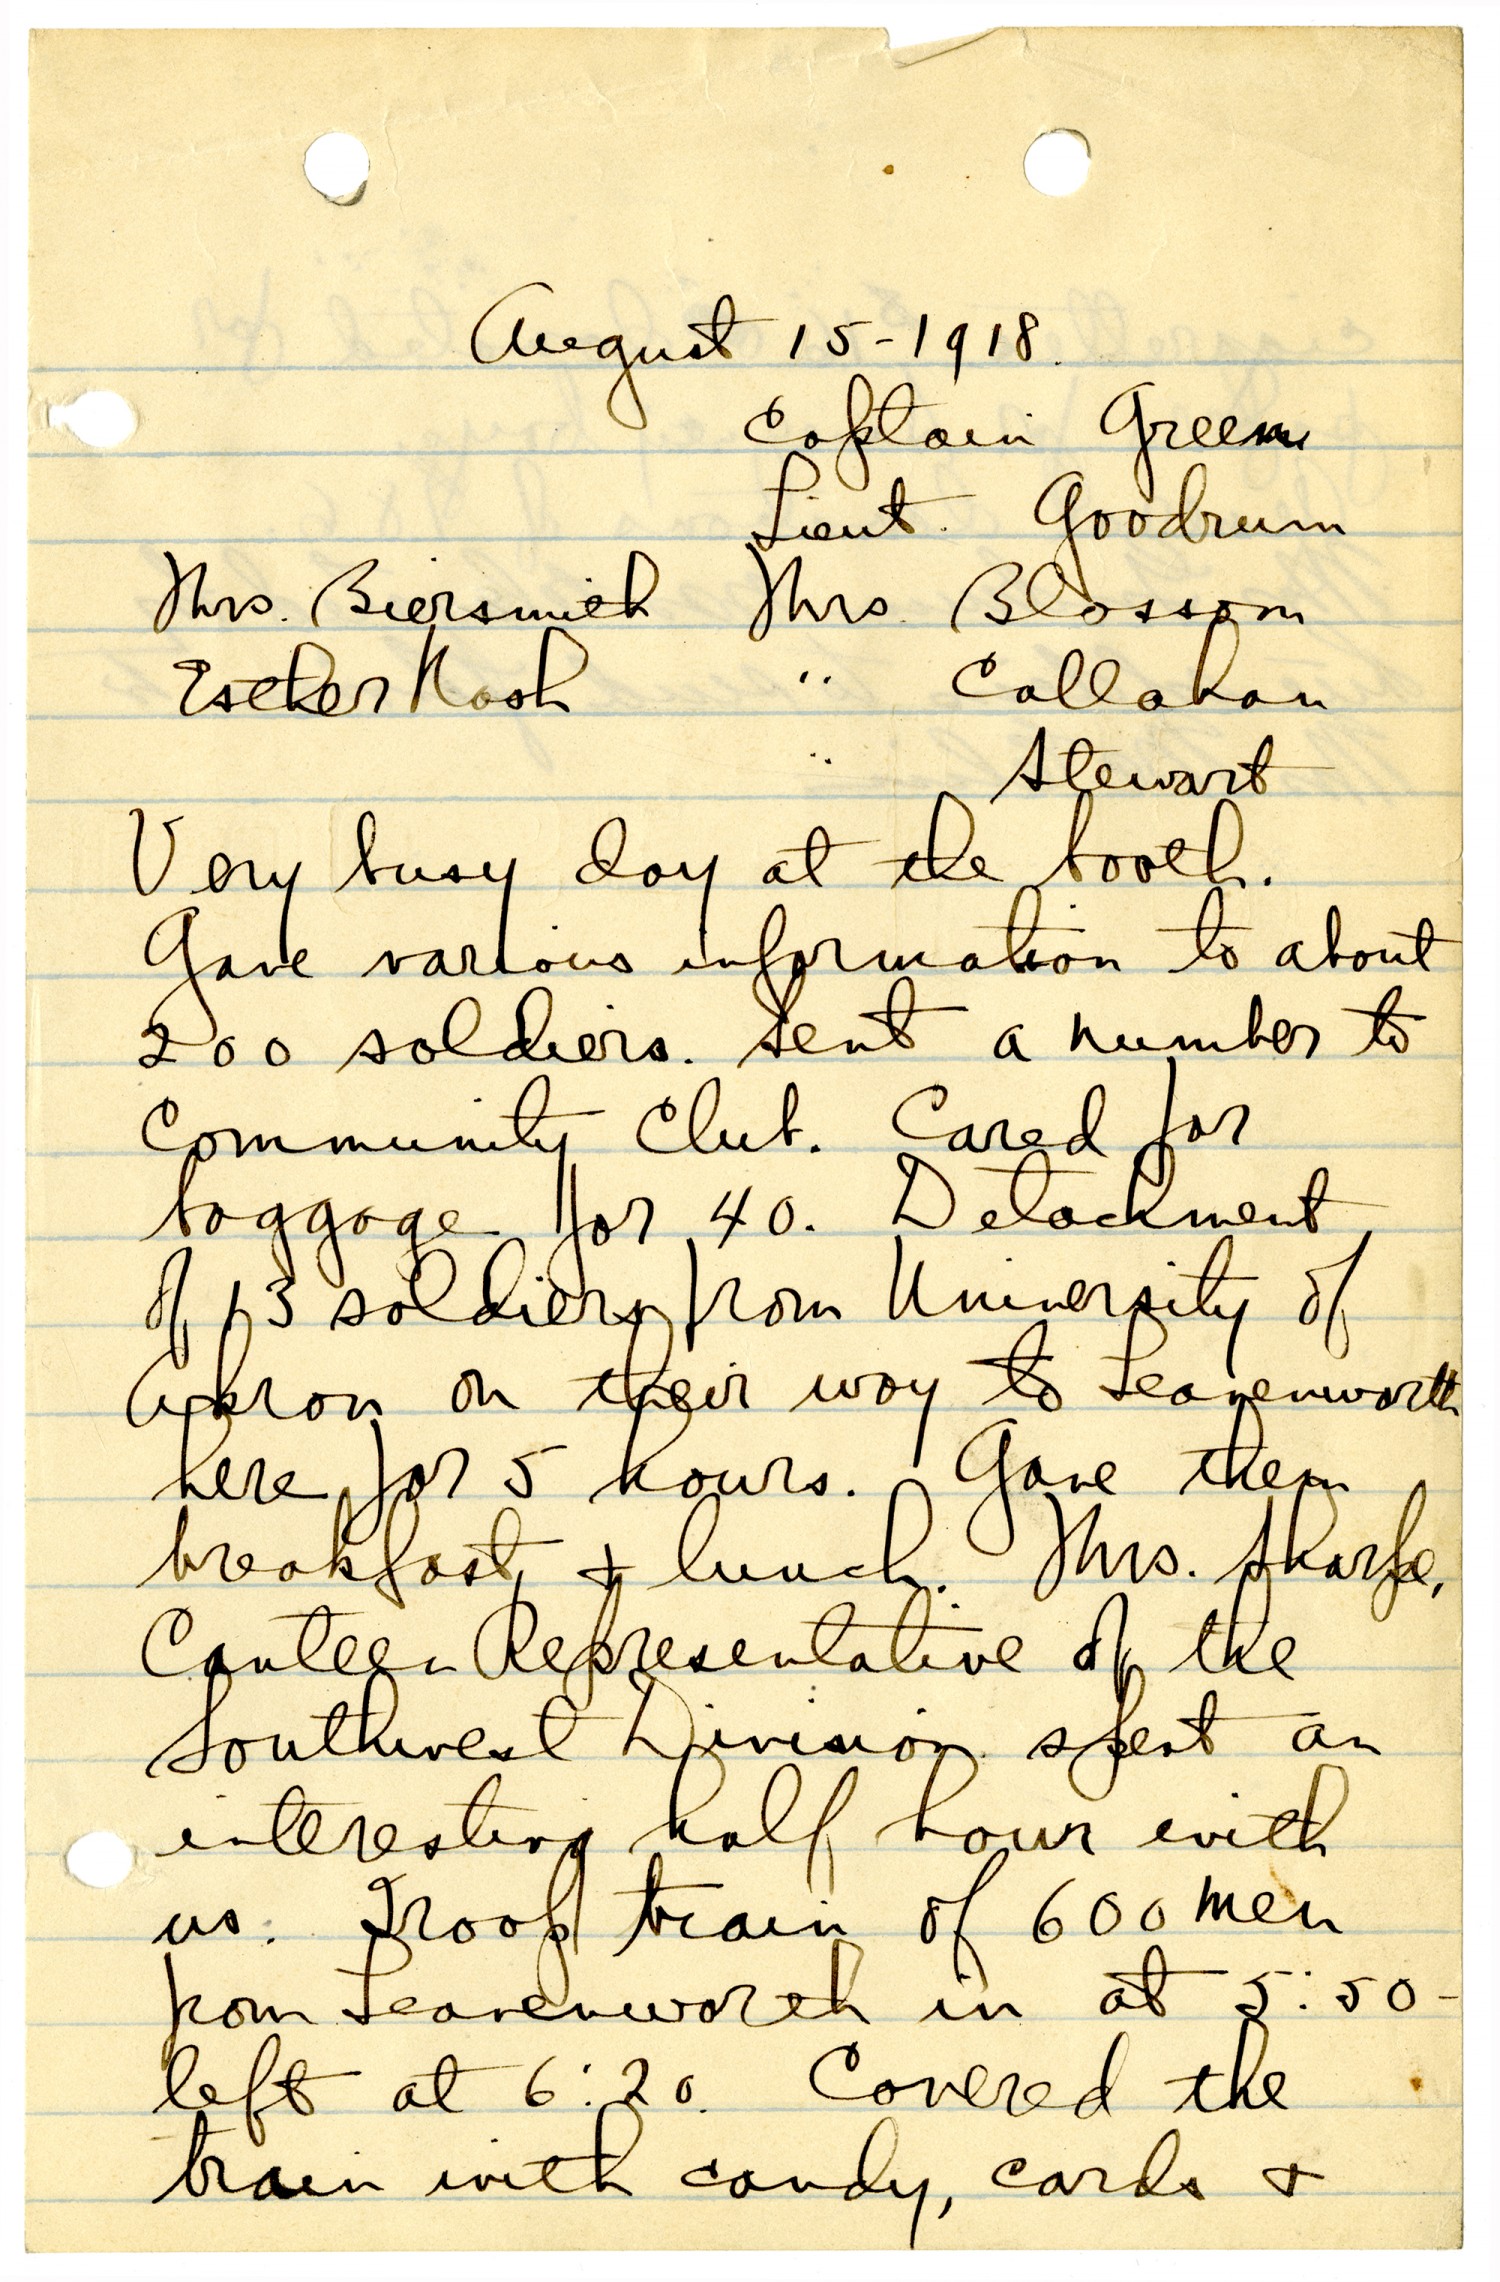 August 15-1918.
Captain Greene
Lieut. Goodrum
Mrs. Biersmith Mrs. Blossom
Esther Nash " Callahan
" Stewart
Very busy day at the booth.
Gave various information to about
200 soldiers. Sent a number to
Community Club. Cared for
baggage for 40. Detachment
of 13 soldiers from University of
Akron on their way to Leavenworth
here for 5 hours. Gave them
breakfast & lunch. Mrs. Sharpe,
Canteen Representative of the
Southwest Division spent an
interesting half hour with
us. Troop train of 600 men
from Leavenworth in at 5:50-
left at 6:20. Covered the
train with candy, cards &